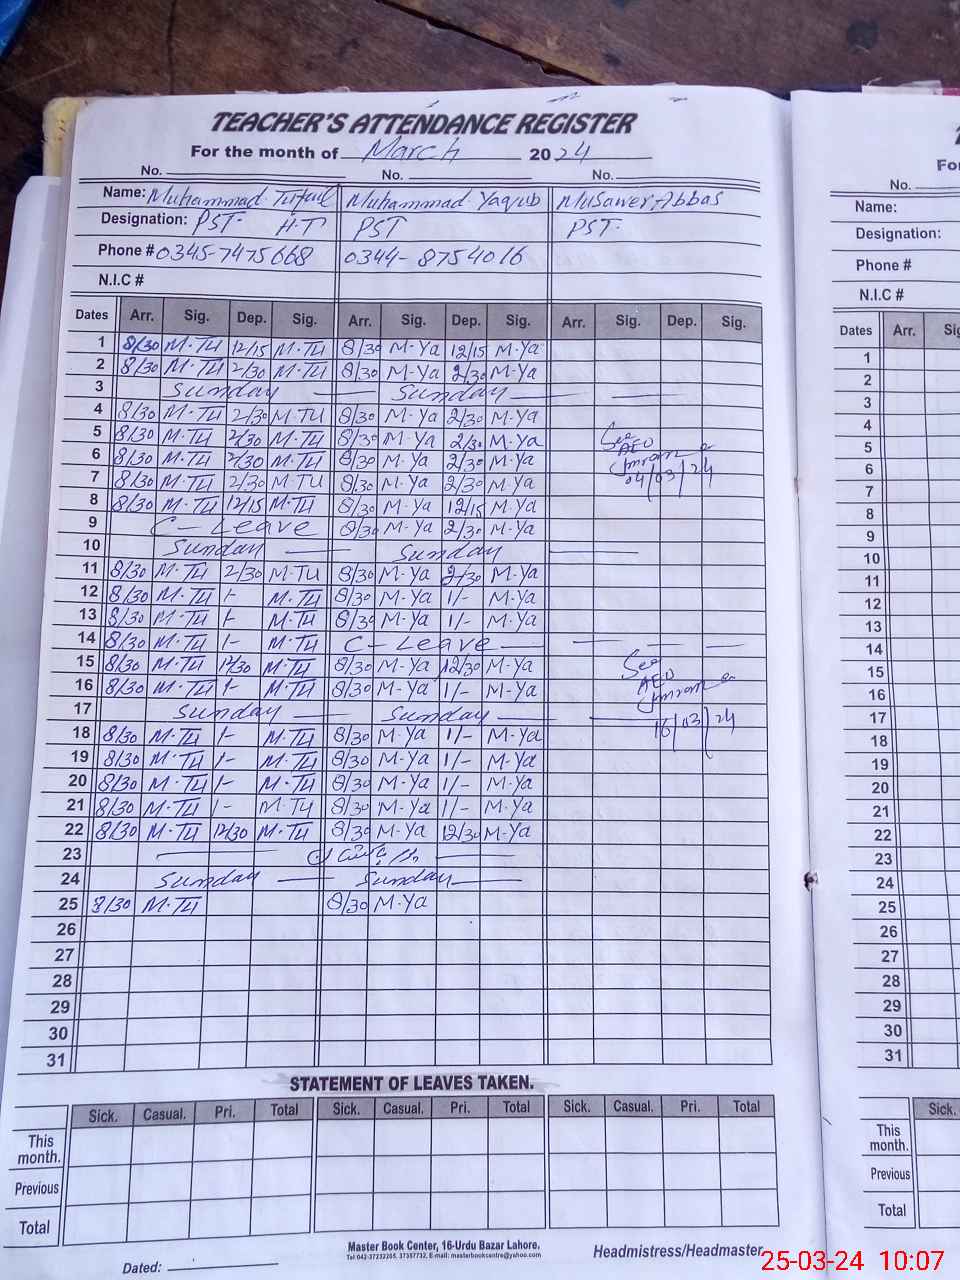 TEACHER'S ATTENDANCE REGISTER
For the month of March 2024
No. No. No.
Name: Muhammad Tufail Muhammad Yaqub Musawer Abbas
Designation: PST H.T PST PST
Phone # 0345-7475668 0344-8754016
N.I.C #
Dates Arr. Sig. Dep. Sig. Arr. Sig. Dep. Sig. Arr. Sig. Dep. Sig.
1 8/30 M.Tu 12/15 M.Tu 8/30 M-Ya 12/15 M-Ya
2 8/30 M.Tu 2/30 M.Tu 8/30 M-Ya 2/30 M-Ya
3 Sunday Sunday
4 8/30 M.Tu 2/30 M.Tu 8/30 M-Ya 2/30 M-Ya
5 8/30 M.Tu 2/30 M.Tu 8/30 M-Ya 2/30 M-Ya See
6 8/30 M.Tu 2/30 M.Tu 8/30 M-Ya 2/30 M-Ya AEO
7 8/30 M.Tu 2/30 M.Tu 8/30 M-Ya 2/30 M-Ya 04/03/24
8 8/30 M.Tu 12/15 M.Tu 8/30 M-Ya 12/15 M-Ya
9 C-Leave 8/30 M-Ya 2/30 M-Ya
10 Sunday Sunday
11 8/30 M.Tu 2/30 M.Tu 8/30 M-Ya 2/30 M-Ya
12 8/30 M.Tu 1- M.Tu 8/30 M-Ya 1/- M-Ya
13 8/30 M.Tu 1- M.Tu 8/30 M-Ya 1/- M-Ya
14 8/30 M.Tu 1- M.Tu C-Leave
15 8/30 M.Tu 12/30 M.Tu 8/30 M-Ya 12/30 M-Ya See
16 8/30 M.Tu 1- M.Tu 8/30 M-Ya 1/- M-Ya AEO
17 Sunday Sunday 16/03/24
18 8/30 M.Tu 1- M.Tu 8/30 M-Ya 1/- M-Ya
19 8/30 M.Tu 1- M.Tu 8/30 M-Ya 1/- M-Ya
20 8/30 M.Tu 1- M.Tu 8/30 M-Ya 1/- M-Ya
21 8/30 M.Tu 1- M.Tu 8/30 M-Ya 1/- M-Ya
22 8/30 M.Tu 12/30 M.Tu 8/30 M-Ya 12/30 M-Ya
23
24 Sunday Sunday
25 8/30 M.Tu 8/30 M-Ya
26
27
28
29
30
31
STATEMENT OF LEAVES TAKEN.
Sick. Casual. Pri. Total Sick. Casual. Pri. Total Sick. Casual. Pri. Total
This month.
Previous
Total
Master Book Center, 16-Urdu Bazar Lahore.
Dated:
Headmistress/Headmaster
No.
Name:
Designation:
Phone #
N.I.C #
Dates Arr.
1
2
3
4
5
6
7
8
9
10
11
12
13
14
15
16
17
18
19
20
21
22
23
24
25
26
27
28
29
30
31
Sick.
This month.
Previous
Total
25-03-24 10:07